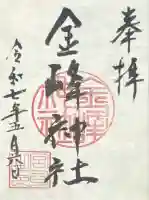 奉拝
金峰神社
令和七年五月六日